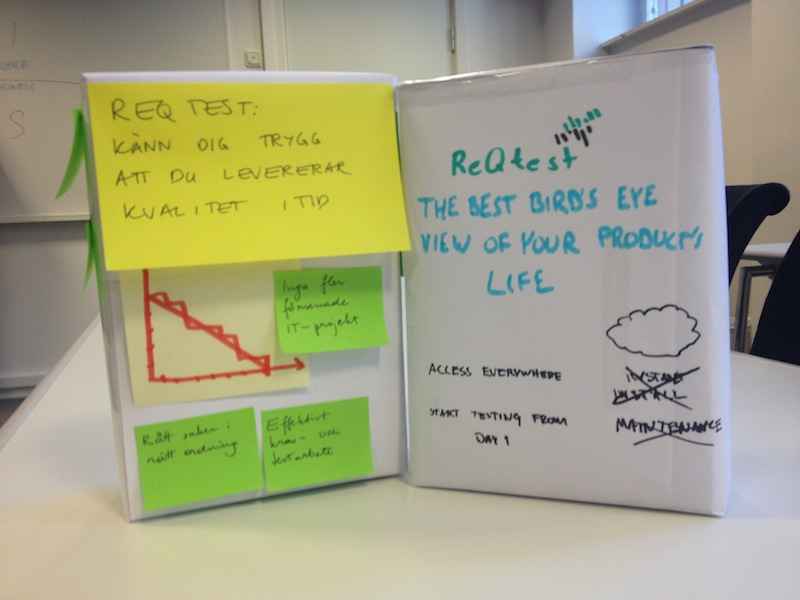 REQTEST:
KÄNN DIG TRYGG
ATT DU LEVERERAR
KVALITET I TID
Inga fler
försenade
IT-projekt
Rätt saker i
rätt ordning
Effektivt
krav- och
testarbete
ReQtest
THE BEST BIRD'S EYE
VIEW OF YOUR PRODUCT'S
LIFE
ACCESS EVERYWHERE
START TESTING FROM
DAY 1
INSTALL
MAINTENANCE